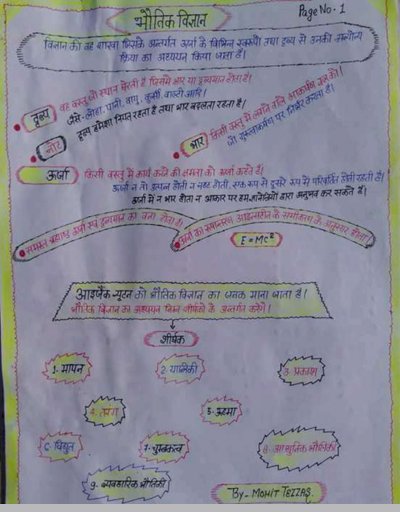 Page No. 1
भौतिक विज्ञान
विज्ञान की वह शाखा जिसके अन्तर्गत ऊर्जा के विभिन्न स्वरूपों तथा द्रव्य से उनकी अन्योन्य
क्रिया का अध्ययन किया जाता है।
द्रव्य
वह वस्तु जो स्थान घेरती है जिसमें भार या द्रव्यमान होता है।
जैसे - लोहा, पानी, वायु, कुर्सी, बाल्टी आदि।
नोट
द्रव्य हमेशा नियत रहता है तथा भार बदलता रहता है।
भार
किसी वस्तु में लगने वाले आकर्षण बल को।
जो गुरुत्वाकर्षण पर निर्भर करता है।
ऊर्जा
किसी वस्तु में कार्य करने की क्षमता को ऊर्जा कहते हैं।
ऊर्जा न तो उत्पन्न होती न नष्ट होती, एक रूप से दूसरे रूप में परिवर्तित होती रहती है।
ऊर्जा में न भार होता न आकार पर हम ज्ञानेन्द्रियों द्वारा अनुभव कर सकते हैं।
समस्त ब्रह्माण्ड ऊर्जा एवं द्रव्यमान का बना होता है।
ऊर्जा का रूपान्तरण आइन्स्टीन के समीकरण के अनुसार होता।
E=MC²
आइजैक न्यूटन को भौतिक विज्ञान का जनक माना जाता है।
भौतिक विज्ञान का अध्ययन निम्न शीर्षकों के अन्तर्गत करेंगे।
शीर्षक
1- मापन
2- यांत्रिकी
3- प्रकाश
4- तरंग
5- ऊष्मा
6- विद्युत
7- चुम्बकत्व
8- आधुनिक भौतिकी
9- व्यवहारिक भौतिकी
By- MOHIT